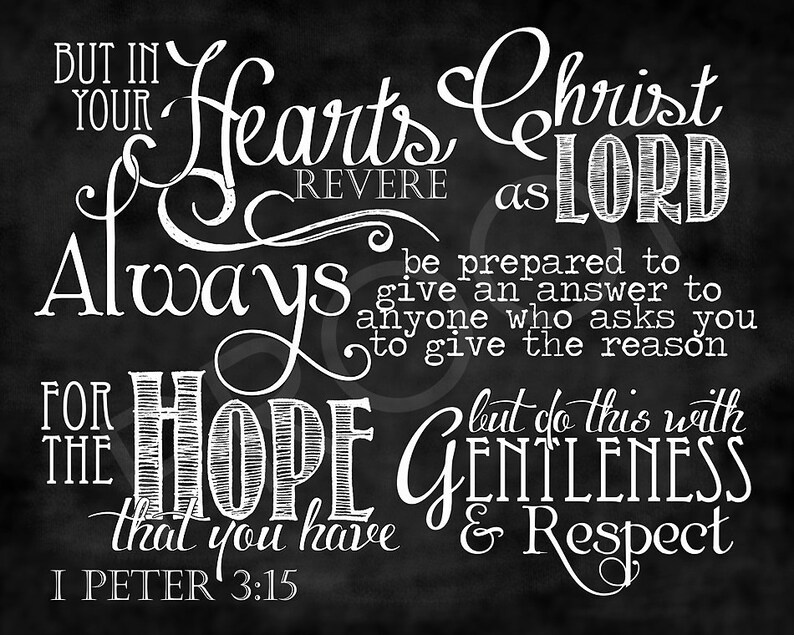 BUT IN
YOUR Hearts
REVERE
Christ
as LORD
Always
be prepared to
give an answer to
anyone who asks you
to give the reason
FOR
THE HOPE
that you have
but do this with
GENTLENESS
& Respect
I PETER 3:15
PROOF